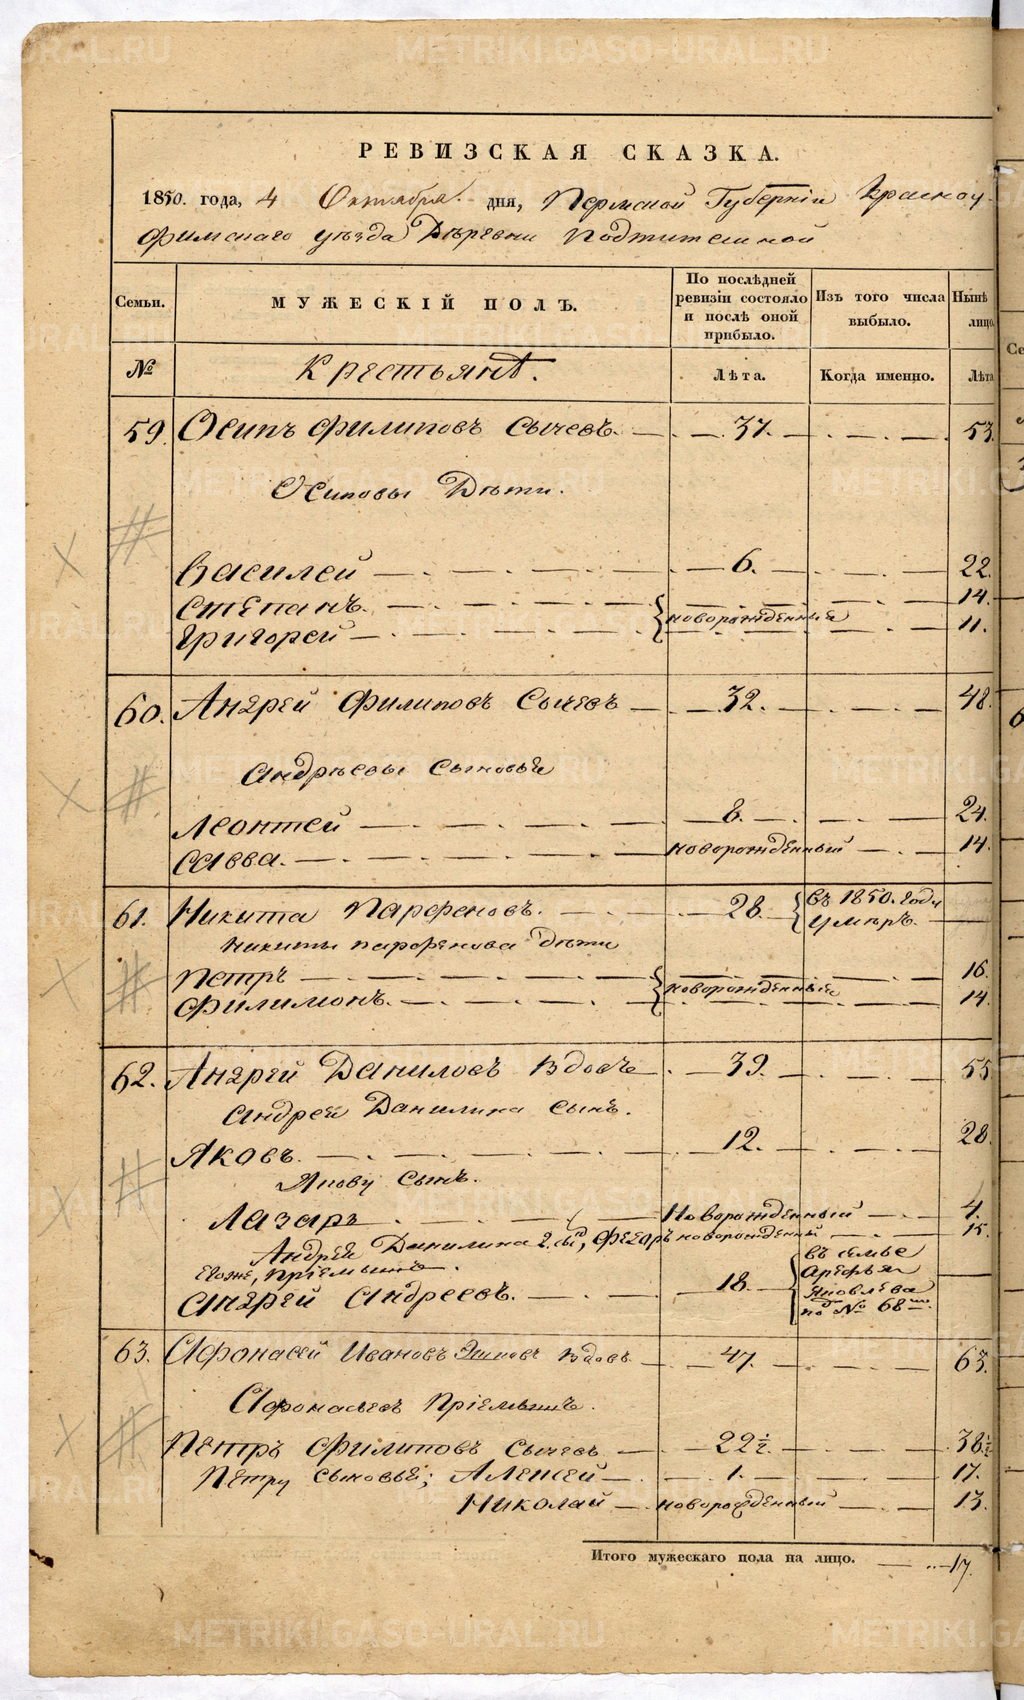 РЕВИЗСКАЯ СКАЗКА.
1850. года, 4 Октября дня, Пермской Губернiи Красноу-
фимскаго уѣзда Деревни
Семьи. МУЖЕСКIЙ ПОЛЪ. По послѣдней ревизiи состояло и послѣ оной прибыло. Изъ того числа выбыло. Нынѣ лицо
№ Крестьянѣ. Лѣта. Когда именно. Лѣта
59. Осипъ Филиповъ Сычевъ. 37. 53
Осиповы Дѣти.
Василей 6. 22.
Степанъ. новорожденные 14.
Григорей 11.
60. Андрей Филиповъ Сычевъ 32. 48.
Андрѣевы сыновье
Леонтей 8. 24.
Савва. новорожденный 14.
61. Никита Парфеновъ. 28. въ 1850. году умеръ.
Никиты парфенова дѣти
Петръ новорожденные 16.
Филимонъ. 14.
62. Андрей Даниловъ вдовъ 39. 55
Андрей Данилина сынъ.
Яковъ. 12. 28.
Якову сынъ.
Лазарь Новорожденный 4.
Андрей Данилина 2. сы, Федоръ новорожденный 15.
Евоже, прiемышъ.
Андрей Андреевъ. 18. въ семье Арефья Яковлева по № 68
63. Афонасей Ивановъ вдовъ 47. 63.
Афонасьевъ Прiемышъ.
Петръ Филиповъ Сычевъ 22½. 38½
Петру сыновье; Алексей 1. 17.
Николай новорожденный 13.
Итого мужескаго пола на лицо. 17.
METRIKI.GASO-URAL.RU